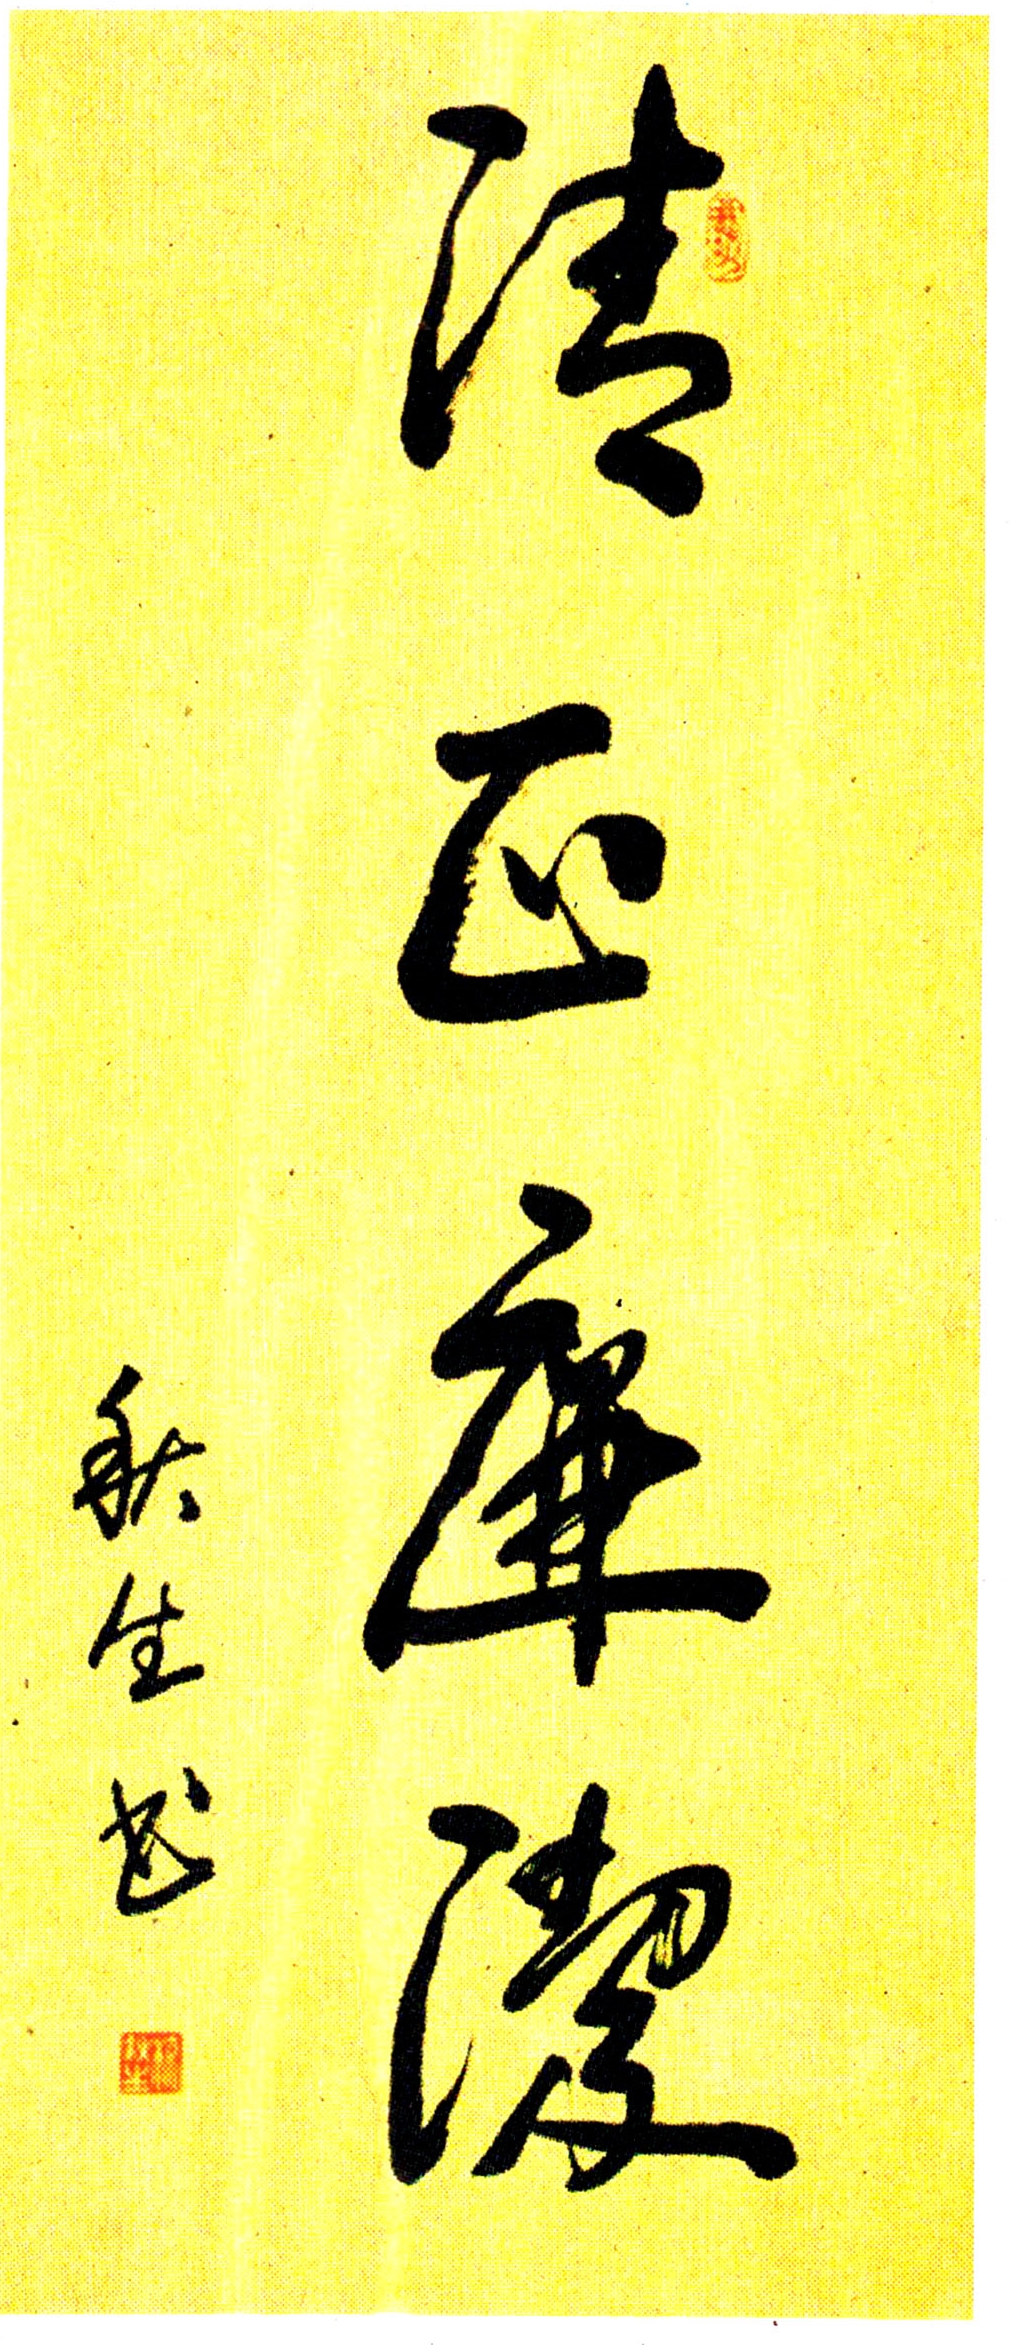 清正廉潔
秋生书